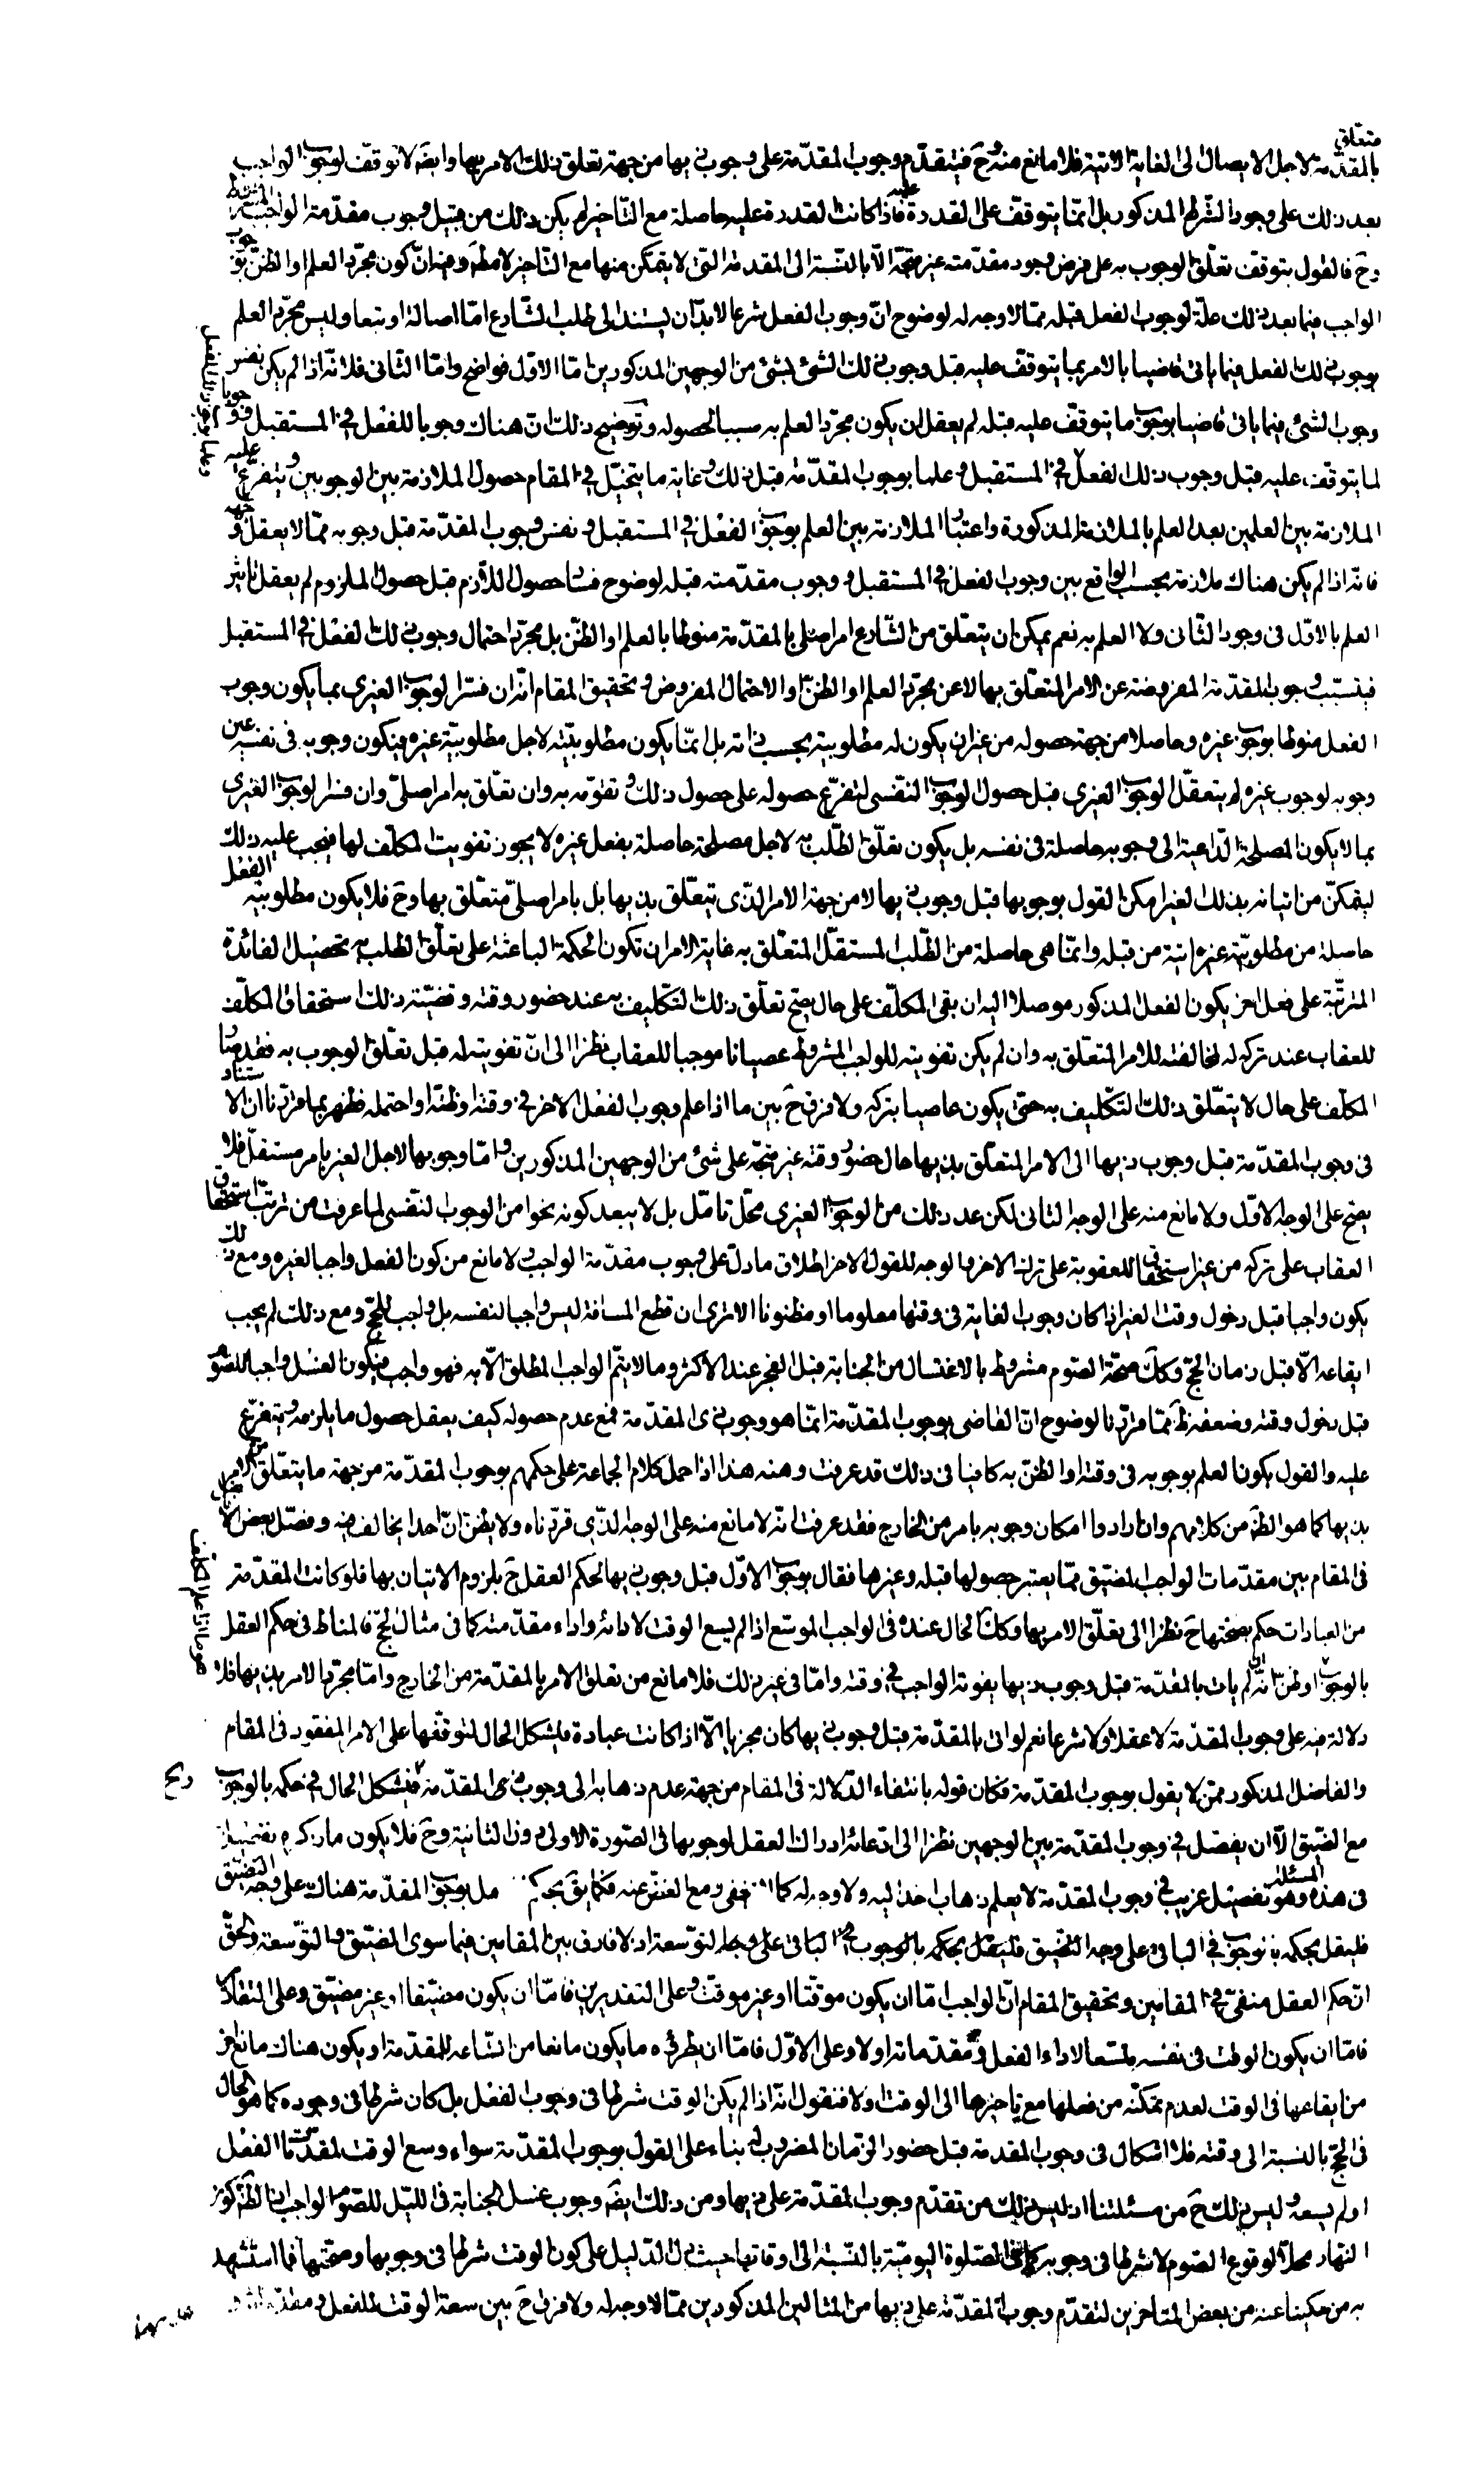 متعلق
بالمقدمة لاجل الايصال الى الغاية الآتية فلا مانع منه وح فيتقدم وجوب المقدمة على وجوب ذيها من جهة تعلق ذلك الامر بها وايضا لا توقف لوجوب الواجب
بعد ذلك على وجود الشرط المذكور بل انما يتوقف على القدرة عليه فاذا كانت القدرة عليه حاصلة مع التاخير لم يكن ذلك من قبيل وجوب مقدمة الواجب المشروط
وح فالقول بتوقف تعلق الوجوب به على فرض وجود مقدمته غير متجه الا بالنسبة الى المقدمة التى لا يتمكن منها مع التاخير لا مطلقا وفيه ان كون مجرد العلم او الظن بوجوب
الواجب فيما بعد ذلك علة لوجوب الفعل قبله مما لا وجه له لوضوح ان وجوب الفعل شرعا لا بد ان يستند الى طلب الشارع اما اصالة او تبعا وليس مجرد العلم
بوجوب ذلك الفعل فيما ياتى قاضيا بالامر بما يتوقف عليه قبل وجوب ذلك الشئ لشئ من الوجهين المذكورين اما الاول فواضح واما الثانى فلانه اذا لم يكن نفس
وجوب الشئ فيما ياتى قاضيا بوجوب ما يتوقف عليه قبله لم يعقل ان يكون مجرد العلم به سببا لحصوله وتوضيح ذلك ان هناك وجوبا للفعل فى المستقبل ووجوبا
لما يتوقف عليه قبل وجوب ذلك الفعل فى المستقبل وعلما بوجوب المقدمة قبل ذلك وغاية ما يتخيل فى المقام حصول الملازمة بين الوجوبين ويتفرع عليه
الملازمة بين العلمين بعد العلم بالملازمة المذكورة واعتبار الملازمة بين العلم بوجوب الفعل فى المستقبل ونفس وجوب المقدمة قبل وجوبه مما لا يعقل وجهه
فانه اذا لم يكن هناك ملازمة بحسب الواقع بين وجوب الفعل فى المستقبل ووجوب مقدمته قبله لوضوح فساد حصول اللازم قبل حصول الملزوم لم يعقل تاثير
العلم بالاول فى وجود الثانى ولا العلم به نعم يمكن ان يتعلق من الشارع امر اصلى بالمقدمة منوطا بالعلم او الظن بل مجرد احتمال وجوب ذلك الفعل فى المستقبل
فيتسبب وجوب المقدمة المفروضة عن الامر المتعلق بها لا عن مجرد العلم او الظن او الاحتمال المفروض وتحقيق المقام انه ان فسر الوجوب الغيرى بما يكون وجوب
الفعل منوطا بوجوب غيره وحاصلا من جهة حصوله من غير ان يكون له مطلوبية بحسب ذاته بل انما يكون مطلوبيته لاجل مطلوبية غيره فيكون وجوبه فى نفسه عين
وجوبه لوجوب غيره لم يتعقل الوجوب الغيرى قبل حصول الوجوب النفسى لتفرع حصوله على حصول ذلك وتقومه به وان تعلق به امر اصلى وان فسر الوجوب الغيرى
بما لا يكون المصلحة الداعية الى وجوبه حاصلة فى نفسه بل يكون تعلق الطلب به لاجل مصلحة حاصلة بفعل غيره لا يجوز تفويت المكلف لها فيجب عليه ذلك الفعل
ليتمكن من اتيانه بذلك الغير امكن القول بوجوبها قبل وجوب ذيها لا من جهة الامر الذى يتعلق بذيها بل بامر اصلى متعلق بها وح فلا يكون مطلوبيته
حاصلة من مطلوبية غيره اتية من قبله وانما هى حاصلة من الطلب المستقل المتعلق به غاية الامر ان تكون الحكمة الباعثة على تعلق الطلب به تحصيل الفائدة
المترتبة على فعل اخر يكون الفعل المذكور موصلا اليه ان بقى المكلف على حال يصح تعلق ذلك التكليف به عند حضور وقته وقضية ذلك استحقاق المكلف
للعقاب عند تركه له لمخالفته للامر المتعلق به وان لم يكن تفويته للواجب المشروط عصيانا موجبا للعقاب نظرا الى ان تفويته له قبل تعلق الوجوب به فقد صار
المكلف على حال لا يتعلق ذلك التكليف به حتى يكون عاصيا بتركه ولا فرق ح بين ما اذا علم وجوب الفعل الاخر فى وقته او ظنه او احتمله فظهر بما قررنا ان الاستناد
فى وجوب المقدمة قبل وجوب ذيها الى الامر المتعلق بذيها حال حضور وقته غير متجه على شئ من الوجهين المذكورين واما وجوبها لاجل الغير بامر مستقل فلا
يصح على الوجه الاول ولا مانع منه على الوجه الثانى لكن عد ذلك من الوجوب الغيرى محل تامل بل لا يبعد كونه نحوا من الوجوب النفسى لما عرفت من ترتب استحقاق
العقاب على تركه من غير استحقاق للعقوبة على ترك الاخر والوجه للقول الاخر اطلاق ما دل على وجوب مقدمة الواجب ولا مانع من كون الفعل واجبا لغيره ومع ذلك
يكون واجبا قبل دخول وقت الغير اذا كان وجوب الغاية فى وقتها معلوما او مظنونا الا ترى ان قطع المسافة ليس واجبا لنفسه بل واجب للحج ومع ذلك لم يجب
ايقاعه الا قبل زمان الحج وكك صحة الصوم مشروط بالاغتسال من الجنابة قبل الفجر عند الاكثر وما لا يتم الواجب المطلق الا به فهو واجب فيكون الغسل واجبا للصوم
قبل دخول وقته وضعفه ظ مما قررنا لوضوح ان القاضى بوجوب المقدمة انما هو وجوب ذى المقدمة فمع عدم حصوله كيف يعقل حصول ما يلزمه ويتفرع
عليه والقول بكون العلم بوجوبه فى وقته او الظن به كافيا فى ذلك قد عرفت وهنه هذا اذا حمل كلام الجماعة على حكمهم بوجوب المقدمة من جهة ما يتعلق من الامر
بذيها كما هو الظ من كلامهم وان ارادوا امكان وجوبه بامر من الخارج فقد عرفت انه لا مانع منه على الوجه الذى قررناه ولا يظن ان احدا يخالف فيه وفصل بعض الافاضل
فى المقام بين مقدمات الواجب المضيق مما يعتبر حصولها قبله وغيرها فقال بوجوب الاول قبل وجوب ذيها لحكم العقل ح بلزوم الاتيان بها فلو كانت المقدمة
من العبادات حكم بصحتها ح نظرا الى تعلق الامر بها وكك الحال عنده فى الواجب الموسع اذا لم يسع الوقت لادائه واداء مقدمته كما فى مثال الحج فالمناط فى حكم العقل
هو ما اذا علم المكلف
بالوجوب او ظن انه ان لم يات بالمقدمة قبل وجوب ذيها يفوته الواجب فى وقته واما فى غير ذلك فلا مانع من تعلق الامر بالمقدمة من الخارج واما مجرد الامر بذيها فلا
دلالة فيه على وجوب المقدمة لا عقلا ولا شرعا نعم لو اتى بالمقدمة قبل وجوب ذيها كان مجزيا الا اذا كانت عبادة فيشكل الحال لتوقفها على الامر المفقود فى المقام
والفاضل المذكور ممن لا يقول بوجوب المقدمة فكان قوله بانتفاء الدلالة فى المقام من جهة عدم ذهابه الى وجوب المقدمة وح فيشكل الحال فى حكمه بالوجوب
مع الضيق الا ان يفصل فى وجوب المقدمة بين الوجهين نظرا الى ادعائه ادراك العقل لوجوبها فى الصورة الاولى دون الثانية وح فلا يكون ما ذكره تفصيلا
فى هذه المسئلة وهو تفصيل غريب فى وجوب المقدمة لا يعلم ذهاب احد اليه ولا وجه له كما لا يخفى ومع الغض عنه فكما يحكم بوجوب المقدمة هناك على وجه التضيق
فليقل بحكمه بالوجوب فى الباقى على وجه التوسعة اذ لا فارق بين المقامين فيما سوى المضيق والتوسعة والحق
ان حكم العقل منفى فى المقامين وتحقيق المقام ان الواجب اما ان يكون موقتا او غير موقت وعلى التقديرين فاما ان يكون مضيقا او غير مضيق وعلى التقادير
فاما ان يكون الوقت فى نفسه متسعا لاداء الفعل ومقدماته او لا وعلى الاول فاما ان يطرئه ما يكون مانعا من اتساعه للمقدمة او يكون هناك مانع اخر
من ايقاعها فى الوقت لعدم تمكنه من فعلها مع تاخيرها الى الوقت او لا فنقول انه اذا لم يكن الوقت شرطا فى وجوب الفعل بل كان شرطا فى وجوده كما هو الحال
فى الحج بالنسبة الى وقته فلا اشكال فى وجوب المقدمة قبل حضور الزمان المضروب له بناء على القول بوجوب المقدمة سواء وسع الوقت لمقدمات الفعل
او لم يسعه وليس ذلك ح من مسئلتنا اذ ليس ذلك من تقدم وجوب المقدمة على ذيها ومن ذلك ايضا وجوب غسل الجنابة فى الليل للصوم الواجب اذ الظ كون
النهار محلا لوقوع الصوم لا شرطا فى وجوبه كما فى الصلوة اليومية بالنسبة الى اوقاتها حيث دل الدليل على كون الوقت شرطا فى وجوبها وصحتها فما استشهد
به من حكينا عنه من بعض المتاخرين لتقدم وجوب المقدمة على ذيها من المثالين المذكورين مما لا وجه له ولا فرق ح بين سعة الوقت للفعل ومقدمته